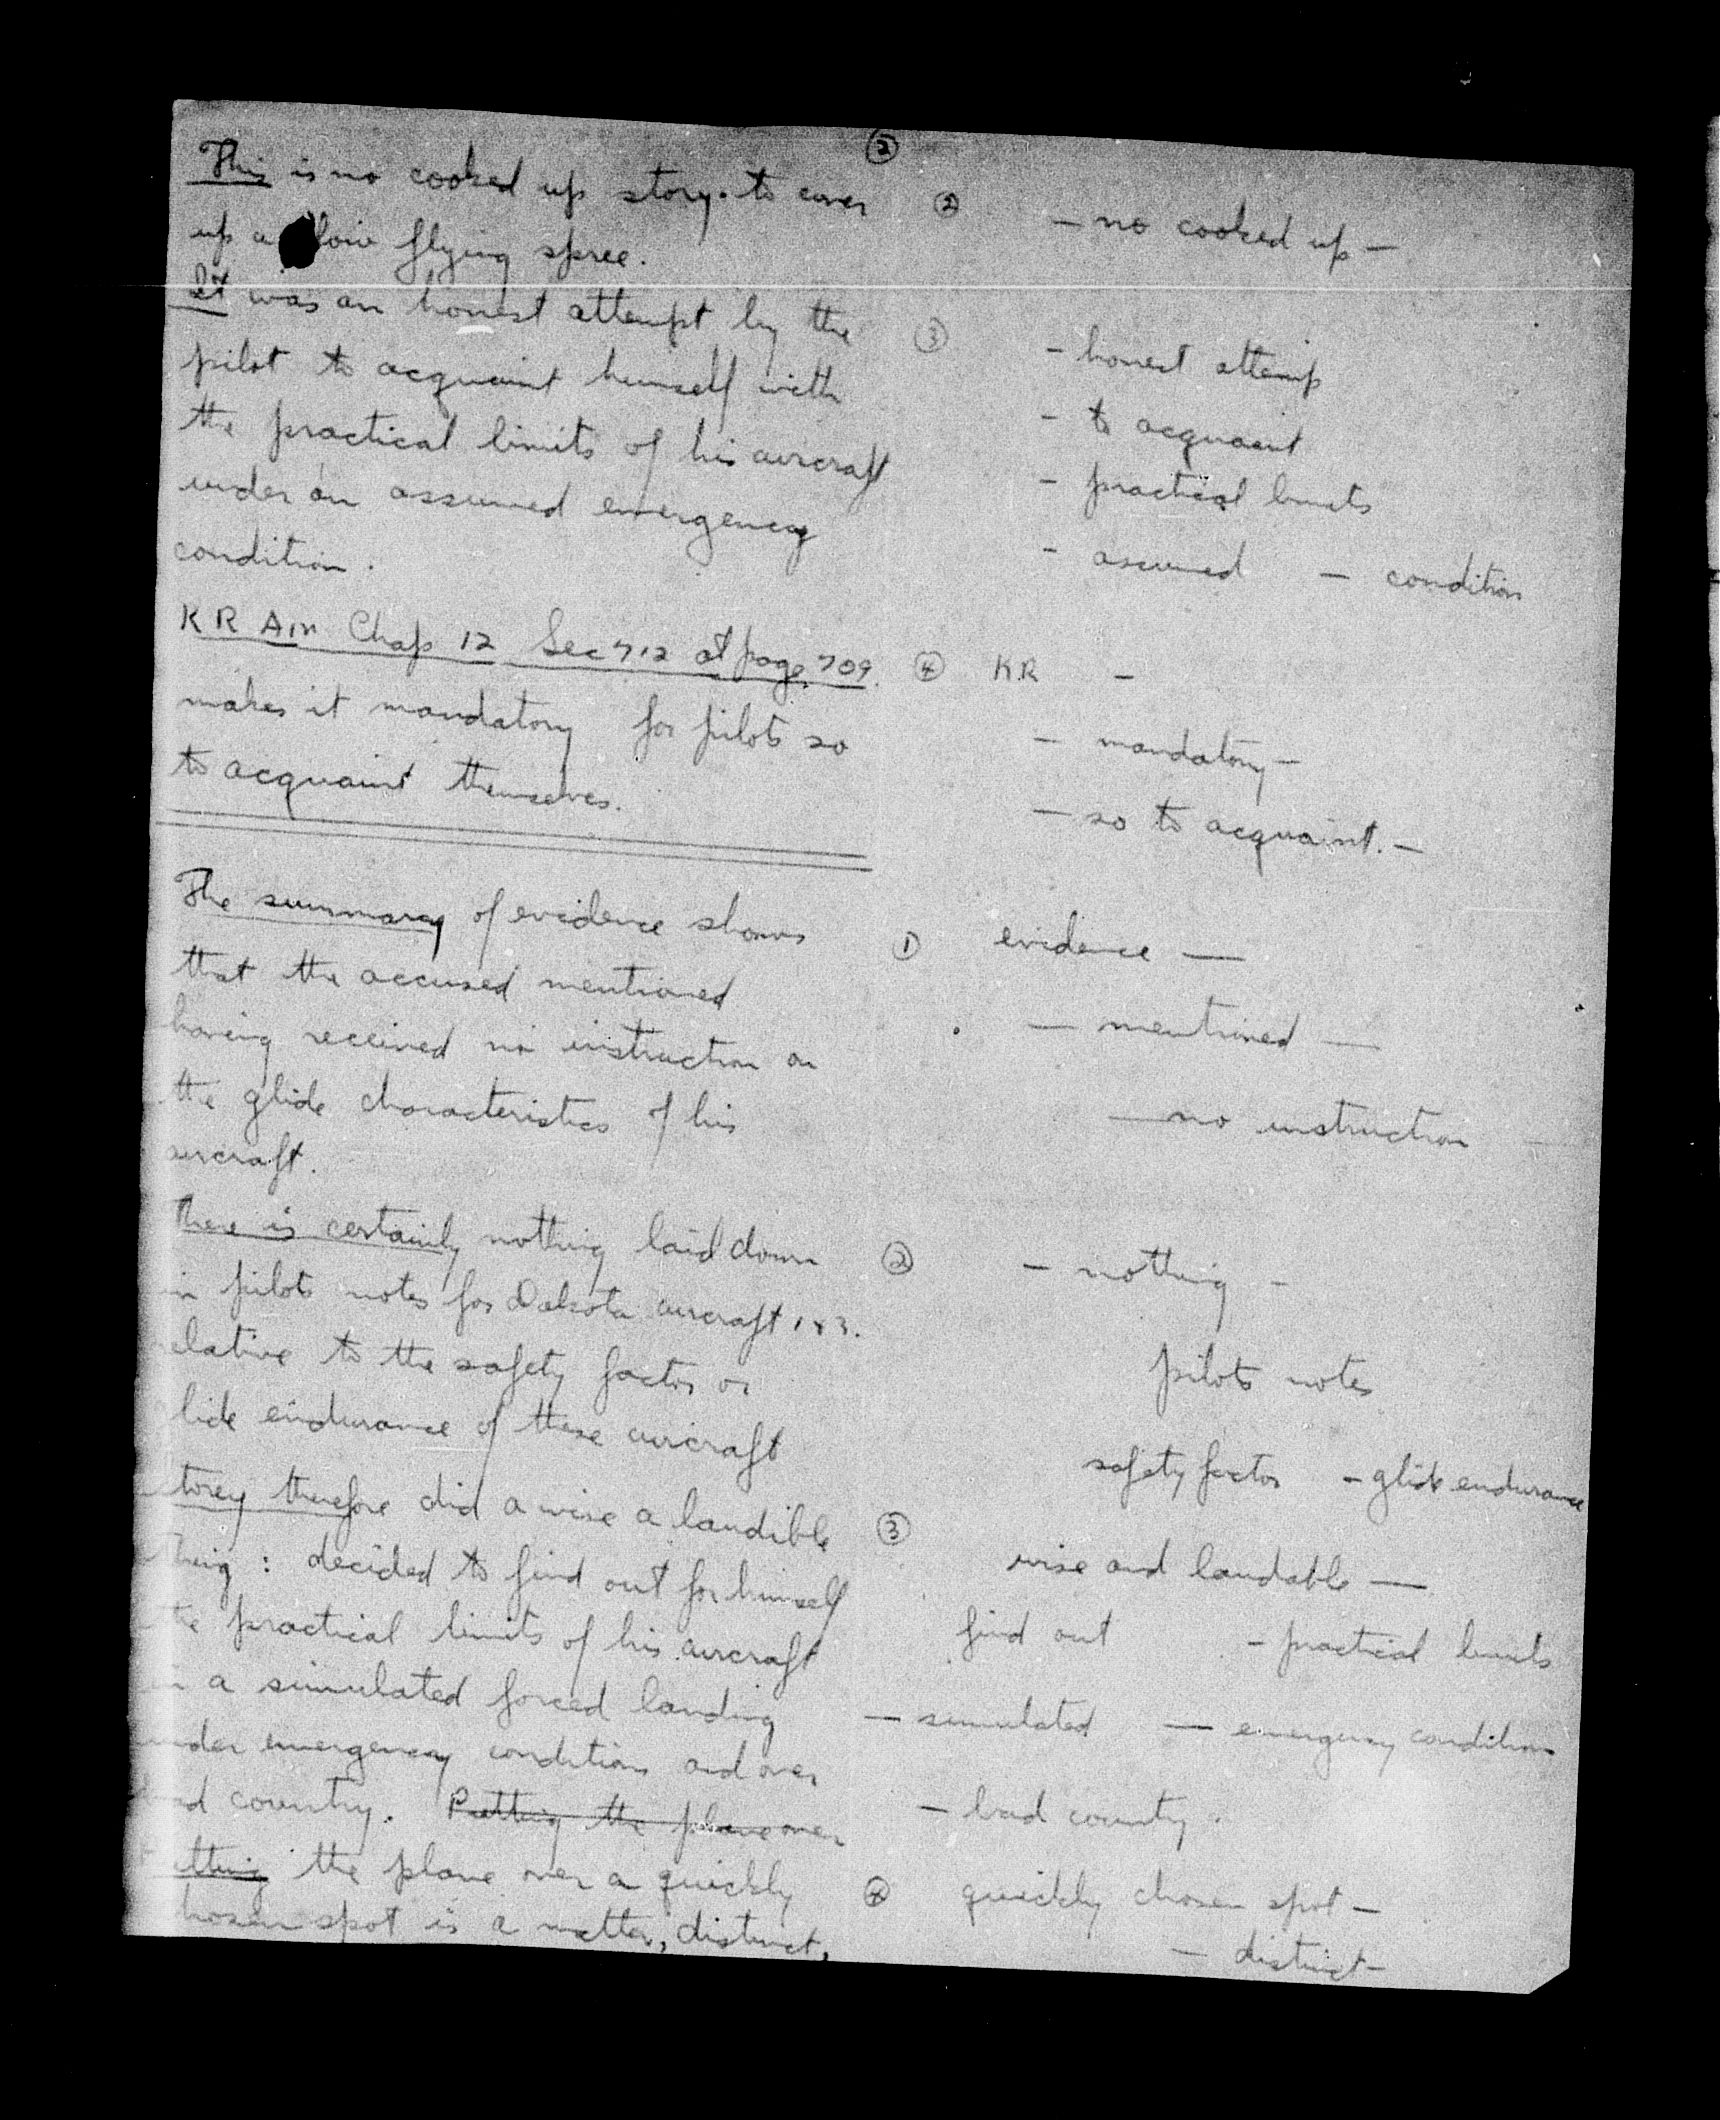 ②
This is no cooked up story. to cover
up a low flying spree.
② - no cooked up -
It was an honest attempt by the
pilot to acquaint himself with
the practical limits of his aircraft
under an assumed emergency
condition.
③ - honest attemp
- to acquaint
- practical limits
- assumed - condition
KR Air Chap 12 Sec 712 at page 709.
makes it mandatory for pilots so
to acquaint themselves.
④ KR -
- mandatory -
- so to acquaint. -
The summary of evidence shows
that the accused mentioned
having received no instruction on
the glide characteristics of his
aircraft.
① evidence —
— mentioned —
— no instruction —
There is certainly nothing laid down
in pilots notes for Dakota aircraft 1 & 3.
elative to the safety factor or
lide endurance of these aircraft
② - nothing -
pilots notes
safety factor - glide endurance
torey therefore did a wise a laudible
thing : decided to find out for himself
the practical limits of his aircraft
in a simulated forced landing
under emergency condition and over
bad country. Putting the plane over
③ wise and laudable —
find out - practical limits
— simulated — emergency condition
- bad country.
utting the plane over a quickly
hosen spot is a matter, distinct,
④ quickly chosen spot -
- distinct -